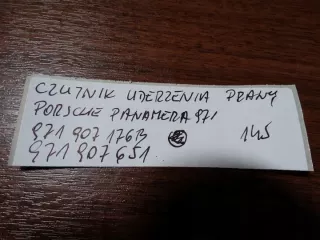 CZUJNIK UDERZENIA PRAWY
PORSCHE PANAMERA 971
971 907 176B 145
971 907 651